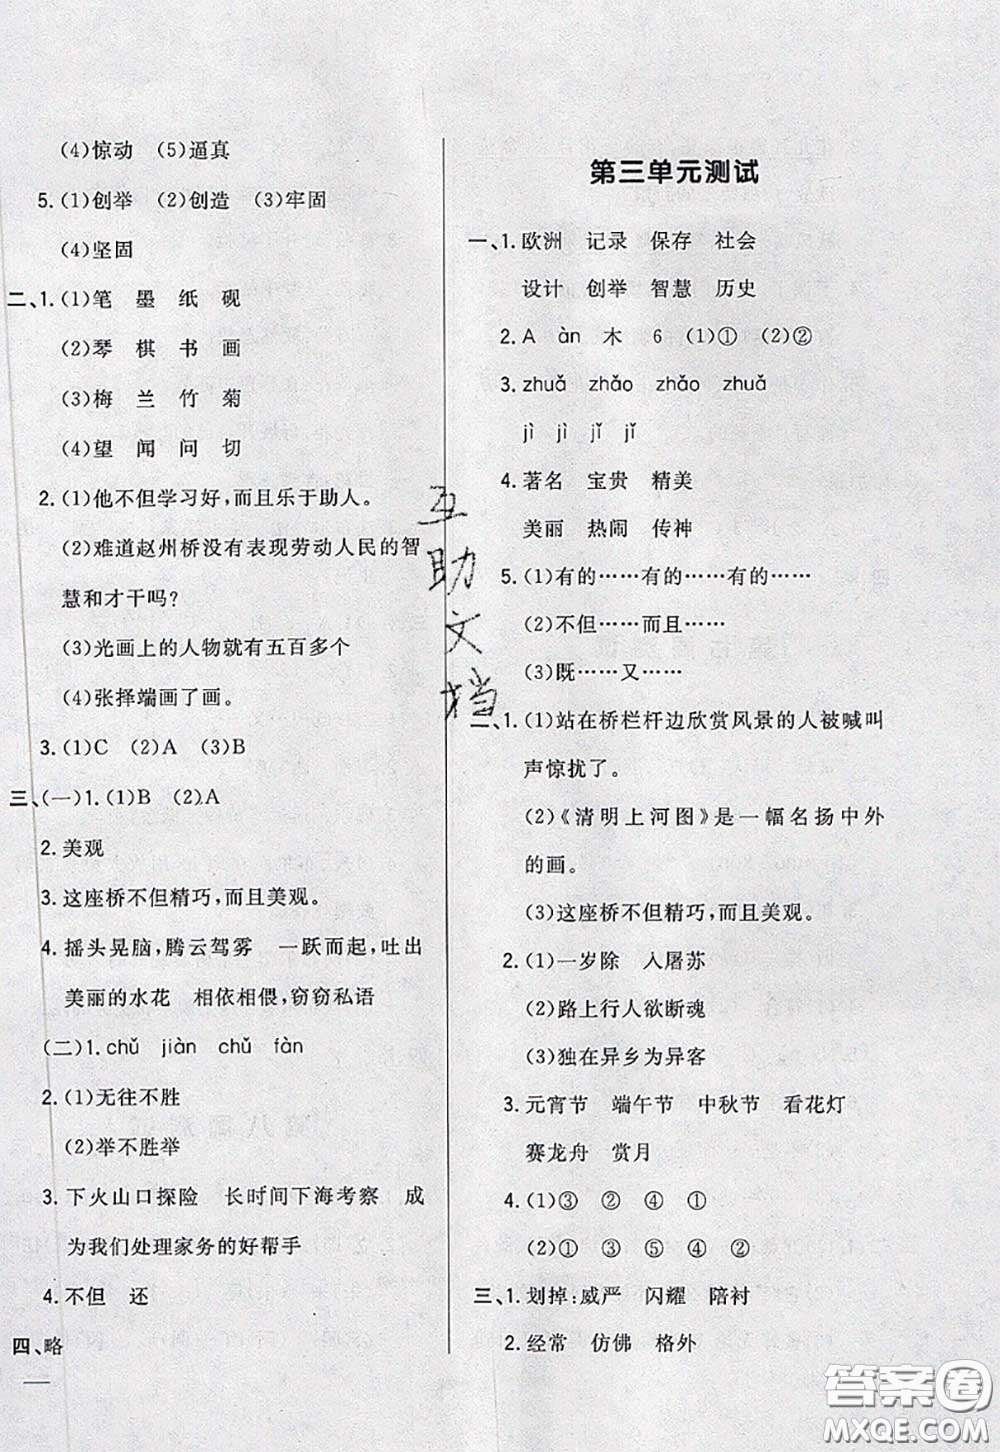 (4)惊动 (5)逼真
5.(1)创举 (2)创造 (3)牢固
(4)坚固
二、1.(1)笔 墨 纸 砚
(2)琴 棋 书 画
(3)梅 兰 竹 菊
(4)望 闻 问 切
2.(1)他不但学习好,而且乐于助人。
(2)难道赵州桥没有表现劳动人民的智
慧和才干吗?
(3)光画上的人物就有五百多个
(4)张择端画了画。
3.(1)C (2)A (3)B
三、(一)1.(1)B (2)A
2.美观
3.这座桥不但精巧,而且美观。
4.摇头晃脑,腾云驾雾 一跃而起,吐出
美丽的水花 相依相偎,窃窃私语
(二)1.chǔ jiàn chǔ fàn
2.(1)无往不胜
(2)举不胜举
3.下火山口探险 长时间下海考察 成
为我们处理家务的好帮手
4.不但 还
四、略
互助文档
第三单元测试
一、1.欧洲 记录 保存 社会
设计 创举 智慧 历史
2.A àn 木 6 (1)① (2)②
3.zhuǎ zhāo zhǎo zhuǎ
jì jì jǐ jǐ
4.著名 宝贵 精美
美丽 热闹 传神
5.(1)有的……有的……有的……
(2)不但……而且……
(3)既……又……
二、1.(1)站在桥栏杆边欣赏风景的人被喊叫
声惊扰了。
(2)《清明上河图》是一幅名扬中外
的画。
(3)这座桥不但精巧,而且美观。
2.(1)一岁除 入屠苏
(2)路上行人欲断魂
(3)独在异乡为异客
3.元宵节 端午节 中秋节 看花灯
赛龙舟 赏月
4.(1)③ ② ④ ①
(2)① ③ ⑤ ④ ②
三、1.划掉:威严 闪耀 陪衬
2.经常 仿佛 格外
答案圈
MXQE.COM